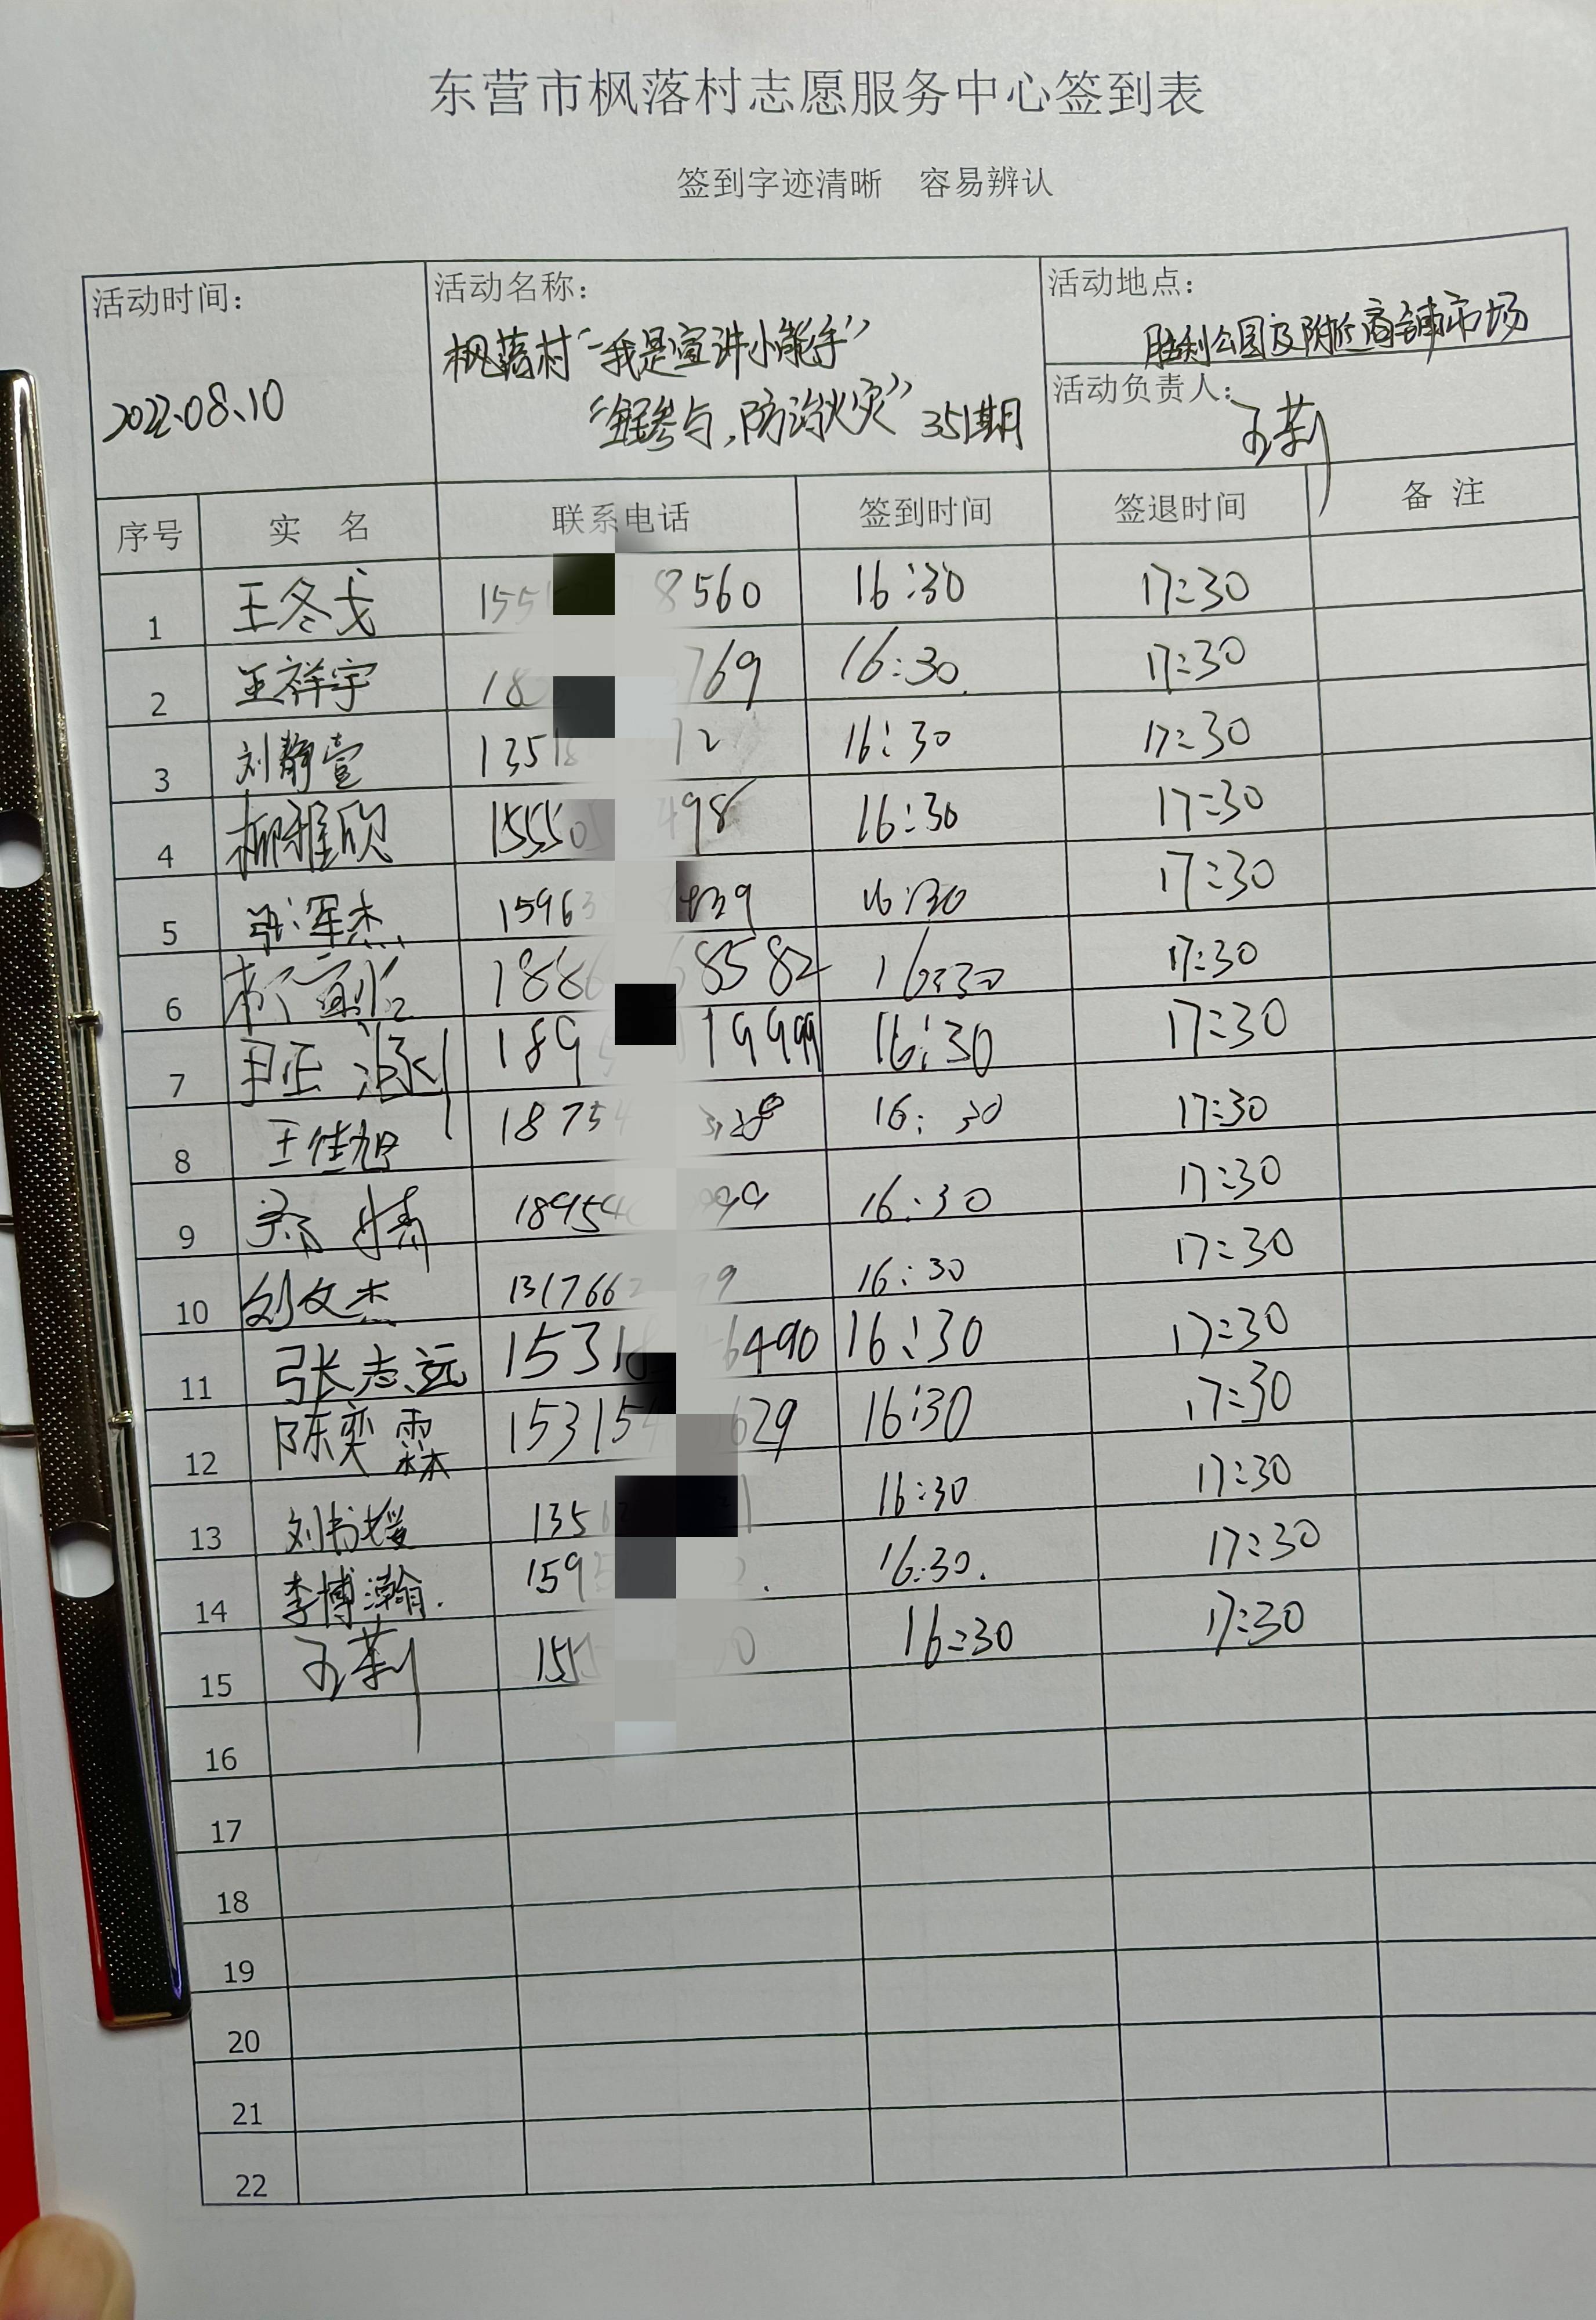 东营市枫落村志愿服务中心签到表
签到字迹清晰 容易辨认
活动时间: 活动名称: 活动地点:
枫落村“我是宣讲小能手” 胜利公园及附近商铺市场
2022.08.10 活动负责人: 王莉
“全民参与,防治火灾” 351期
序号 实 名 联系电话 签到时间 签退时间 备 注
1 王冬戈 155 8560 16:30 17:30
2 王祥宇 18 769 16:30 17:30
3 刘静萱 1351 12 16:30 17:30
4 柳雅欣 15550 498 16:30 17:30
5 张浑杰 1596 439 16:30 17:30
6 188 8582 16:30 17:30
7 尹正 189 19999 16:30 17:30
8 王佳旭 1875 16:30 17:30
9 18954 99 16:30 17:30
10 刘文杰 131766 9 16:30 17:30
11 张志远 1531 6490 16:30 17:30
12 陈奕霖 15315 629 16:30 17:30
13 刘书媛 135 1 16:30 17:30
14 李博瀚. 159 2. 16:30. 17:30
15 王莉 155 0 16:30 17:30
16
17
18
19
20
21
22